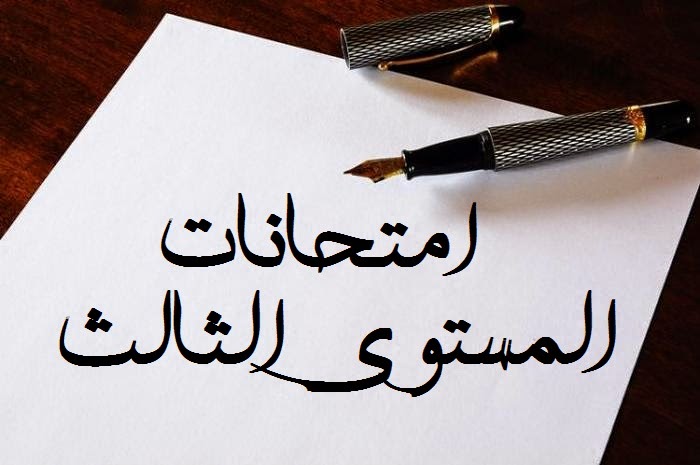 امتحانات
المستوى الثالث